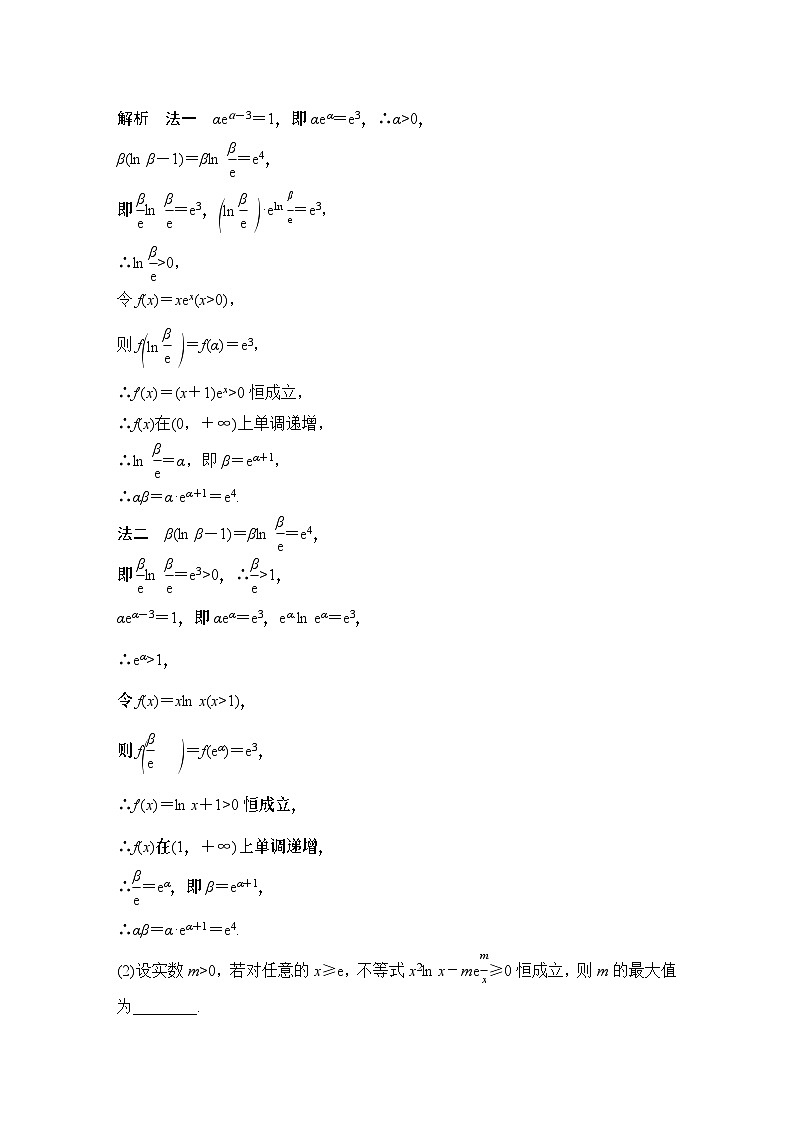 解析　法一　αe^{α－3}＝1，即 αe^α＝e^3，∴α>0，
β(ln β－1)＝βln \frac{β}{e}＝e^4，
即\frac{β}{e}ln \frac{β}{e}＝e^3，(ln \frac{β}{e})·e^{ln \frac{β}{e}}＝e^3，
∴ln \frac{β}{e}>0，
令 f(x)＝xe^x(x>0)，
则 f(ln \frac{β}{e})＝f(α)＝e^3，
∴f′(x)＝(x＋1)e^x>0 恒成立，
∴f(x)在(0，＋∞)上单调递增，
∴ln \frac{β}{e}＝α，即 β＝e^{α＋1}，
∴αβ＝α·e^{α＋1}＝e^4.
法二　β(ln β－1)＝βln \frac{β}{e}＝e^4，
即\frac{β}{e}ln \frac{β}{e}＝e^3>0，∴\frac{β}{e}>1，
αe^{α－3}＝1，即 αe^α＝e^3，e^α·ln e^α＝e^3，
∴e^α>1，
令 f(x)＝xln x(x>1)，
则 f(\frac{β}{e})＝f(e^α)＝e^3，
∴f′(x)＝ln x＋1>0 恒成立，
∴f(x)在(1，＋∞)上单调递增，
∴\frac{β}{e}＝e^α，即 β＝e^{α＋1}，
∴αβ＝α·e^{α＋1}＝e^4.
(2)设实数 m>0，若对任意的 x≥e，不等式 x^2ln x－me^{\frac{m}{x}}≥0 恒成立，则 m 的最大值
为________.